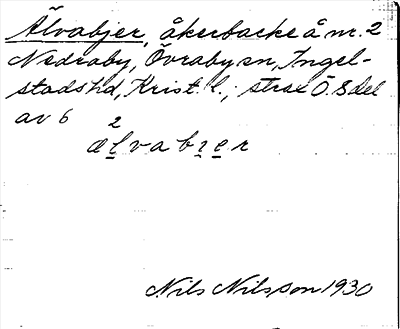 Älvabjer, åkerbacke å nr. 2
Nedraby, Övraby sn, Ingel-
stads hd, Krist. l., strax Ö. S del
av 6
2
ælvabier
Nils Nilsson 1930